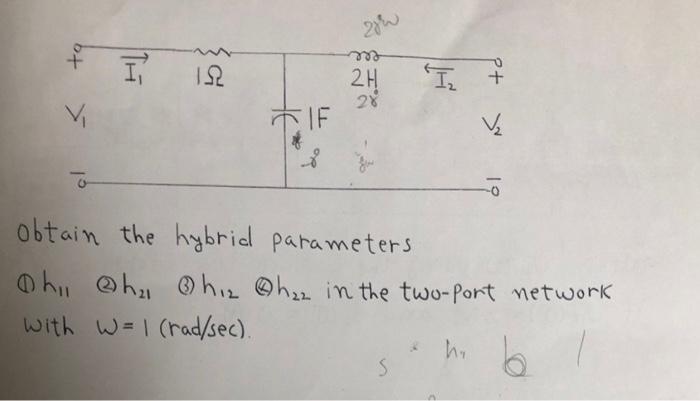 + I₁ 1Ω 2H I₂ +
V₁ 1F V₂
obtain the hybrid parameters
① h₁₁ ② h₂₁ ③ h₁₂ ④ h₂₂ in the two-port network
with W = 1 (rad/sec).